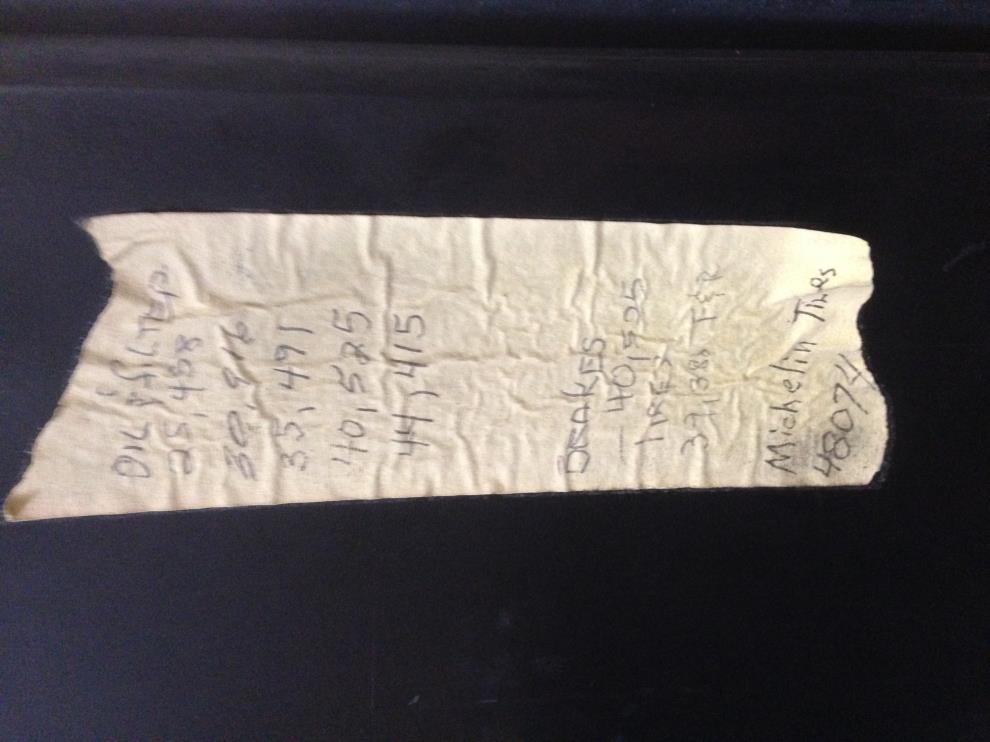 OIL & FILTER
25,458
30,916
35,491
40,525
44,415
BRAKES
— 401525
TIRES
39,388 F&R
Michelin Tires
48074